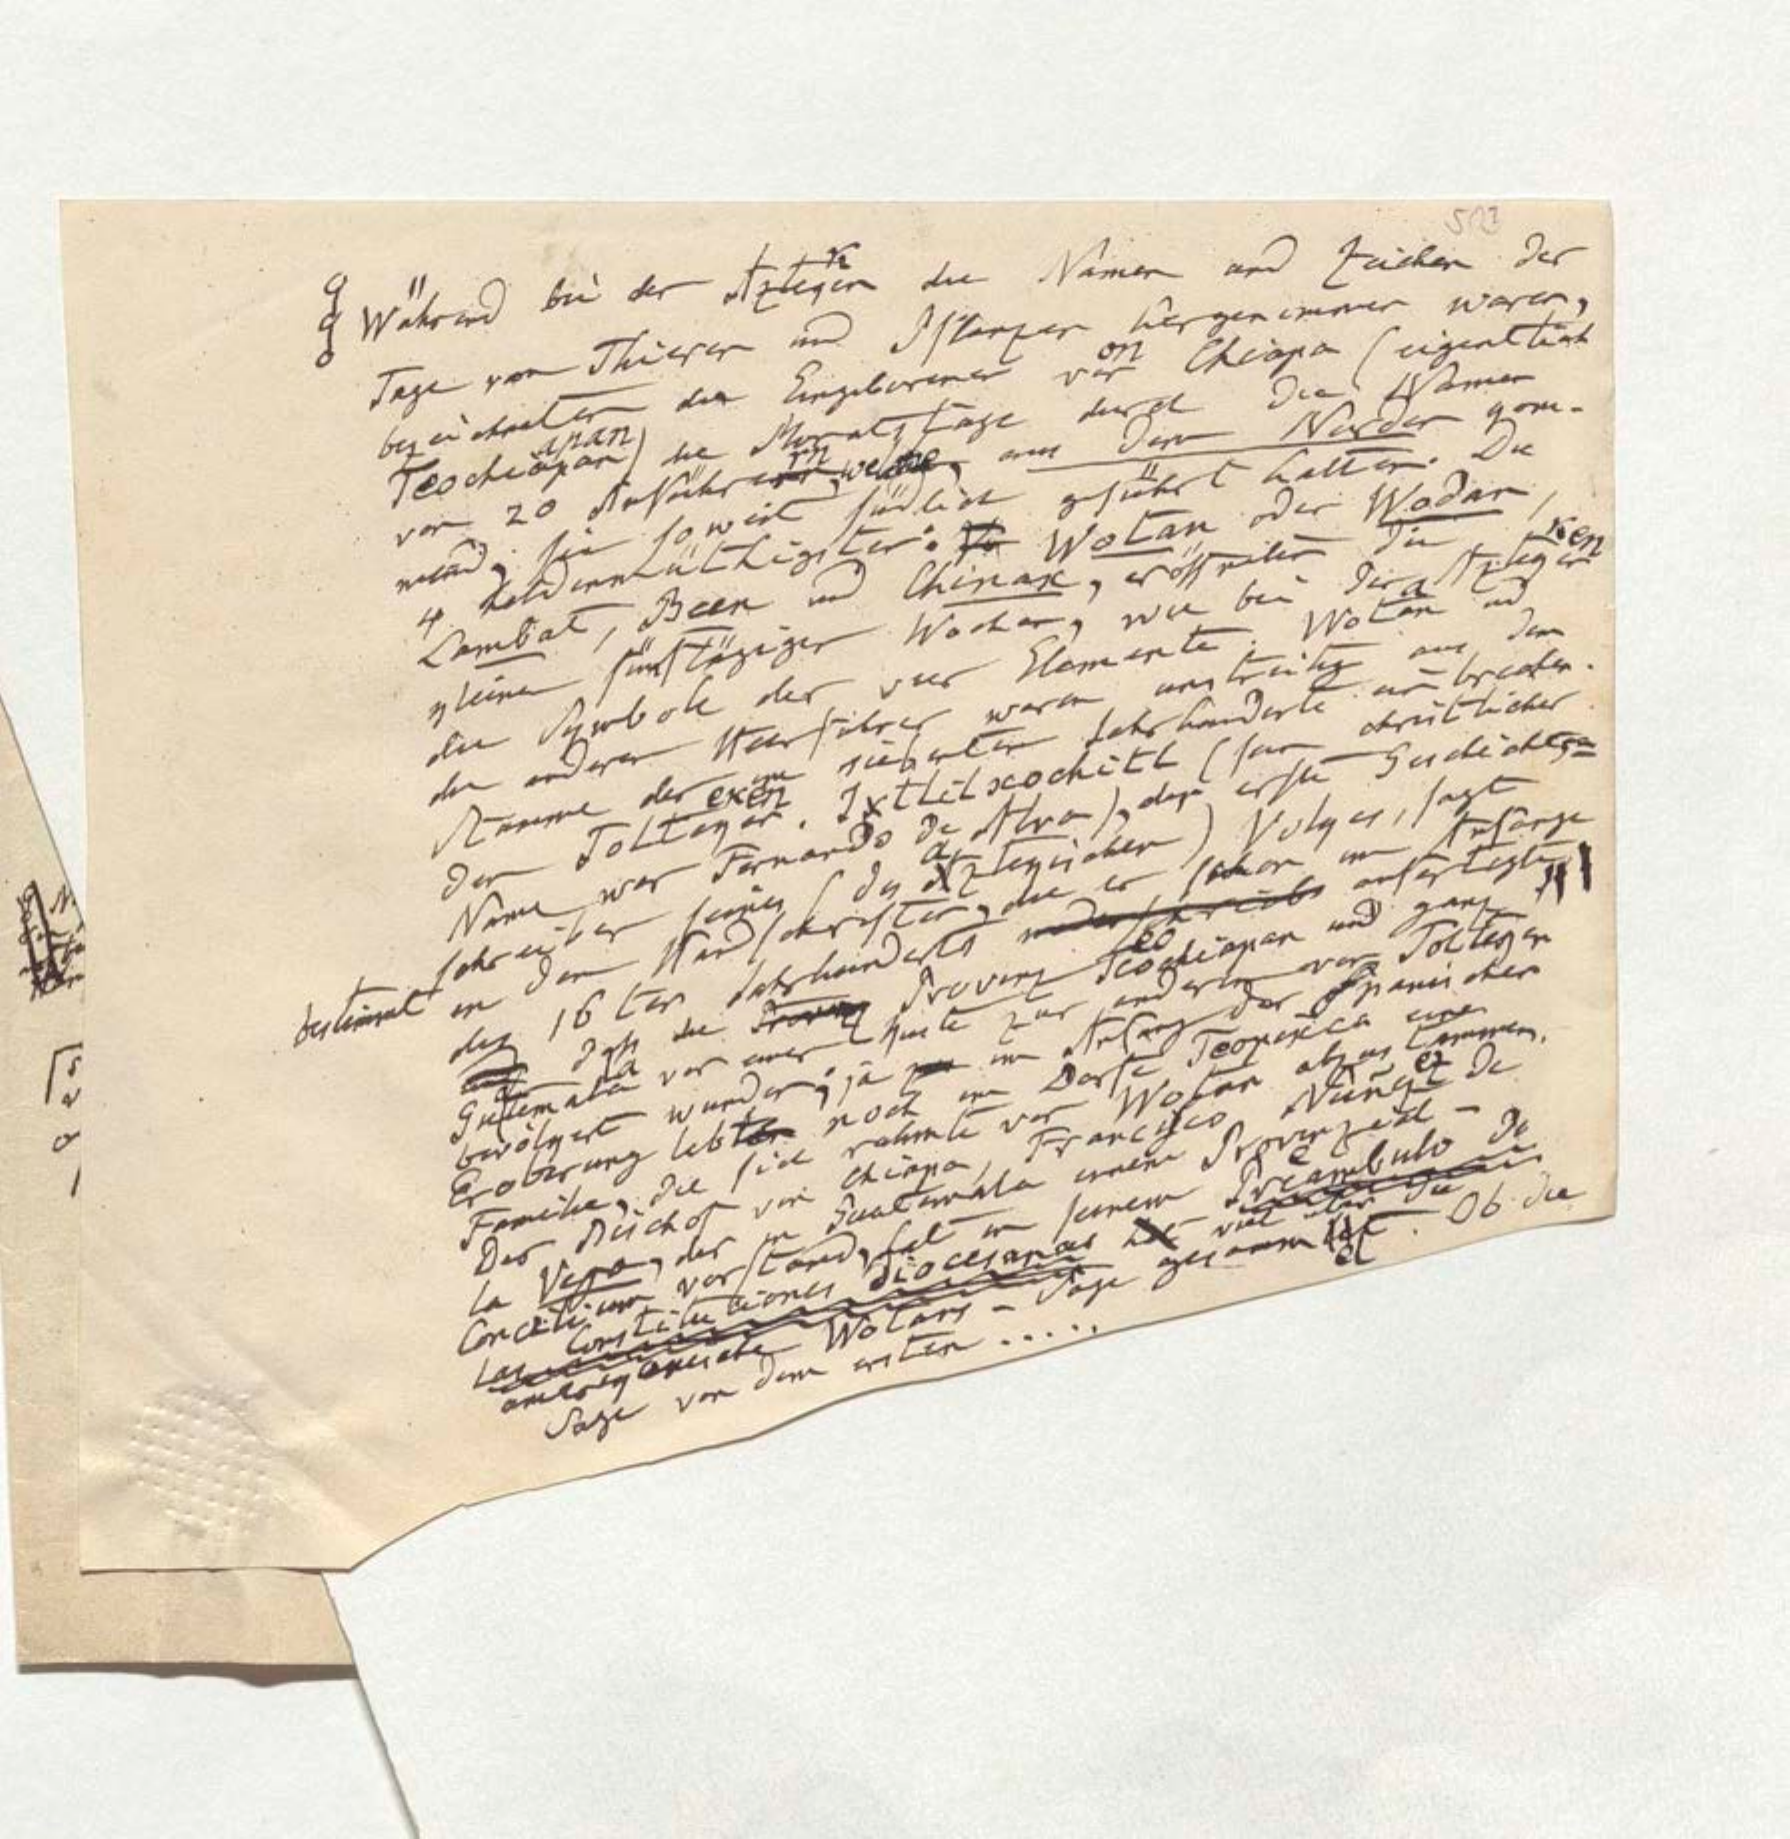 513
Während bei den Azteken die Namen und Zeichen der
Tage von Thieren und Pflanzen hergenommen waren,
bezeichneten die Eingeborenen von Chiapa (eigentlich
Teochiapan) die Monatstage durch die Namen
von 20 Anführern, welche, aus dem Norden kom-
mend, sie so weit südlich geführt hatten. Die
4 heldenmüthigsten: Wotan oder Wodan,
Lambat, Been und Chinax, eröffneten die
kleinen fünftägigen Wochen, wie bei den Azteken
die Symbole der vier Elemente. Wotan und
die anderen Heerführer waren unstreitig aus dem
Stamme der im siebenten Jahrhunderte einbrechen-
den Tolteken. Ixtlilxochitl (sein christlicher
Name war Fernando de Alva), der erste Geschichts-
schreiber seines (des Aztekischen) Volkes, sagt
bestimmt in den Handschriften, die er schon im Anfange
des 16ten Jahrhunderts anfertigte,
daß die Provinz Teochiapan und ganz
Guatemala von einer Küste zur anderen von Tolteken
bevölkert wurden; ja im Anfang der spanischen
Eroberung lebte noch im Dorfe Teopixca eine
Familie, die sich rühmte von Wotan abzustammen.
Der Bischof von Chiapa, Francisco Nuñez de
la Vega, der in Guatemala einem Provinzial-
Concilium vorstand, hat in seinem Preambulo de
las Constituciones diocesanas viel über die
amerikanische Wotans-Sage gesammelt. Ob die
Sage von dem ersten .....